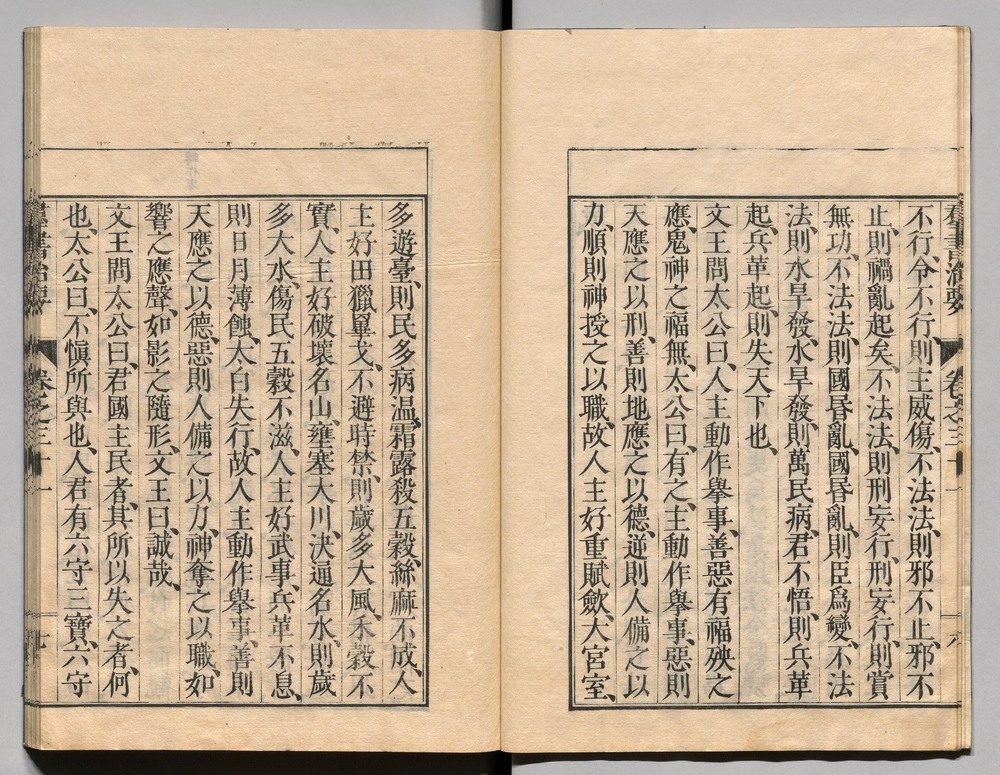 群書治要 卷之三十一 六
不行、令不行、則主威傷、不法法、則邪不止、邪不
止、則禍亂起矣、不法法、則刑妄行、刑妄行、則賞
無功、不法法、則國昬亂、國昬亂、則臣爲變、不法
法、則水旱發、水旱發、則萬民病、君不悟、則兵革
起、兵革起、則失天下也、
文王問太公曰、人主動作擧事、善惡有福殃之
應、鬼神之福無、太公曰、有之、主動作擧事、惡則
天應之以刑、善則地應之以德、逆則人備之以
力、順則神授之以職、故人主好重賦歛、大宮室、
多遊臺、則民多病温、霜露殺五穀、絲麻不成、人
主好田獵畢弋、不避時禁、則歲多大風、禾穀不
實、人主好破壞名山、壅塞大川、決通名水、則歲
多大水、傷民五穀不滋、人主好武事、兵革不息、
則日月薄蝕、太白失行、故人主動作擧事、善則
天應之以德、惡則人備之以力、神奪之以職、如
響之應聲、如影之隨形、文王曰、誠哉、
文王問太公曰、君國主民者、其所以失之者、何
也、太公曰、不愼所與也、人君有六守三寶、六守
群書治要 卷之三十一 七